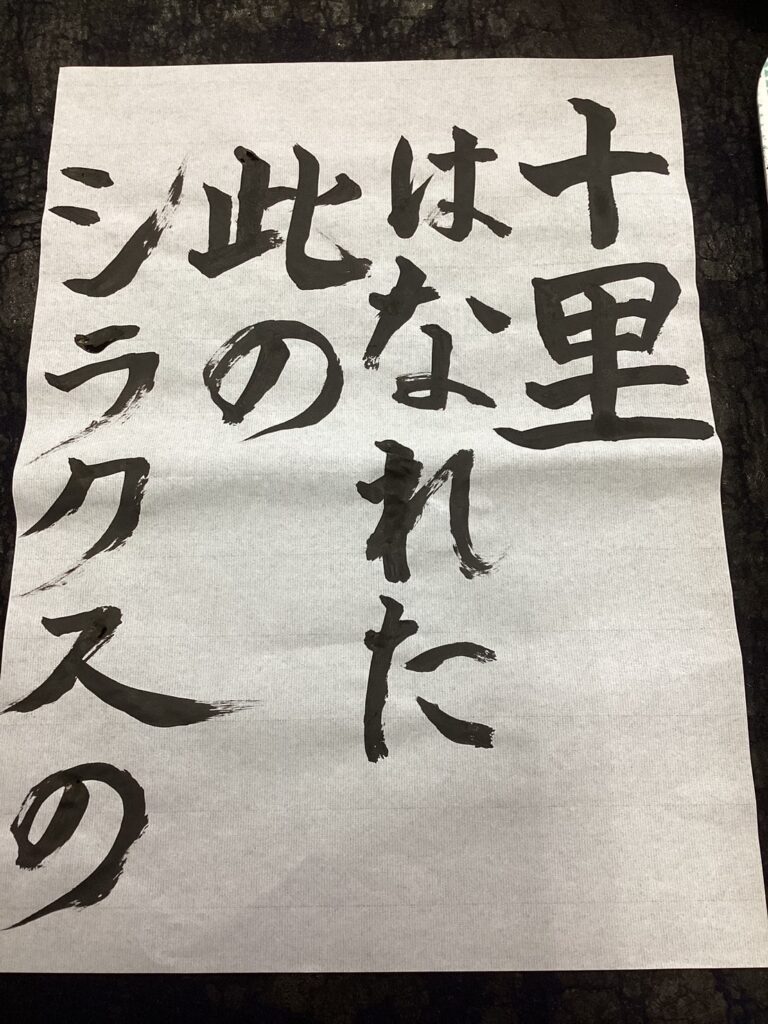 十里
はなれた
此の
シラクスの